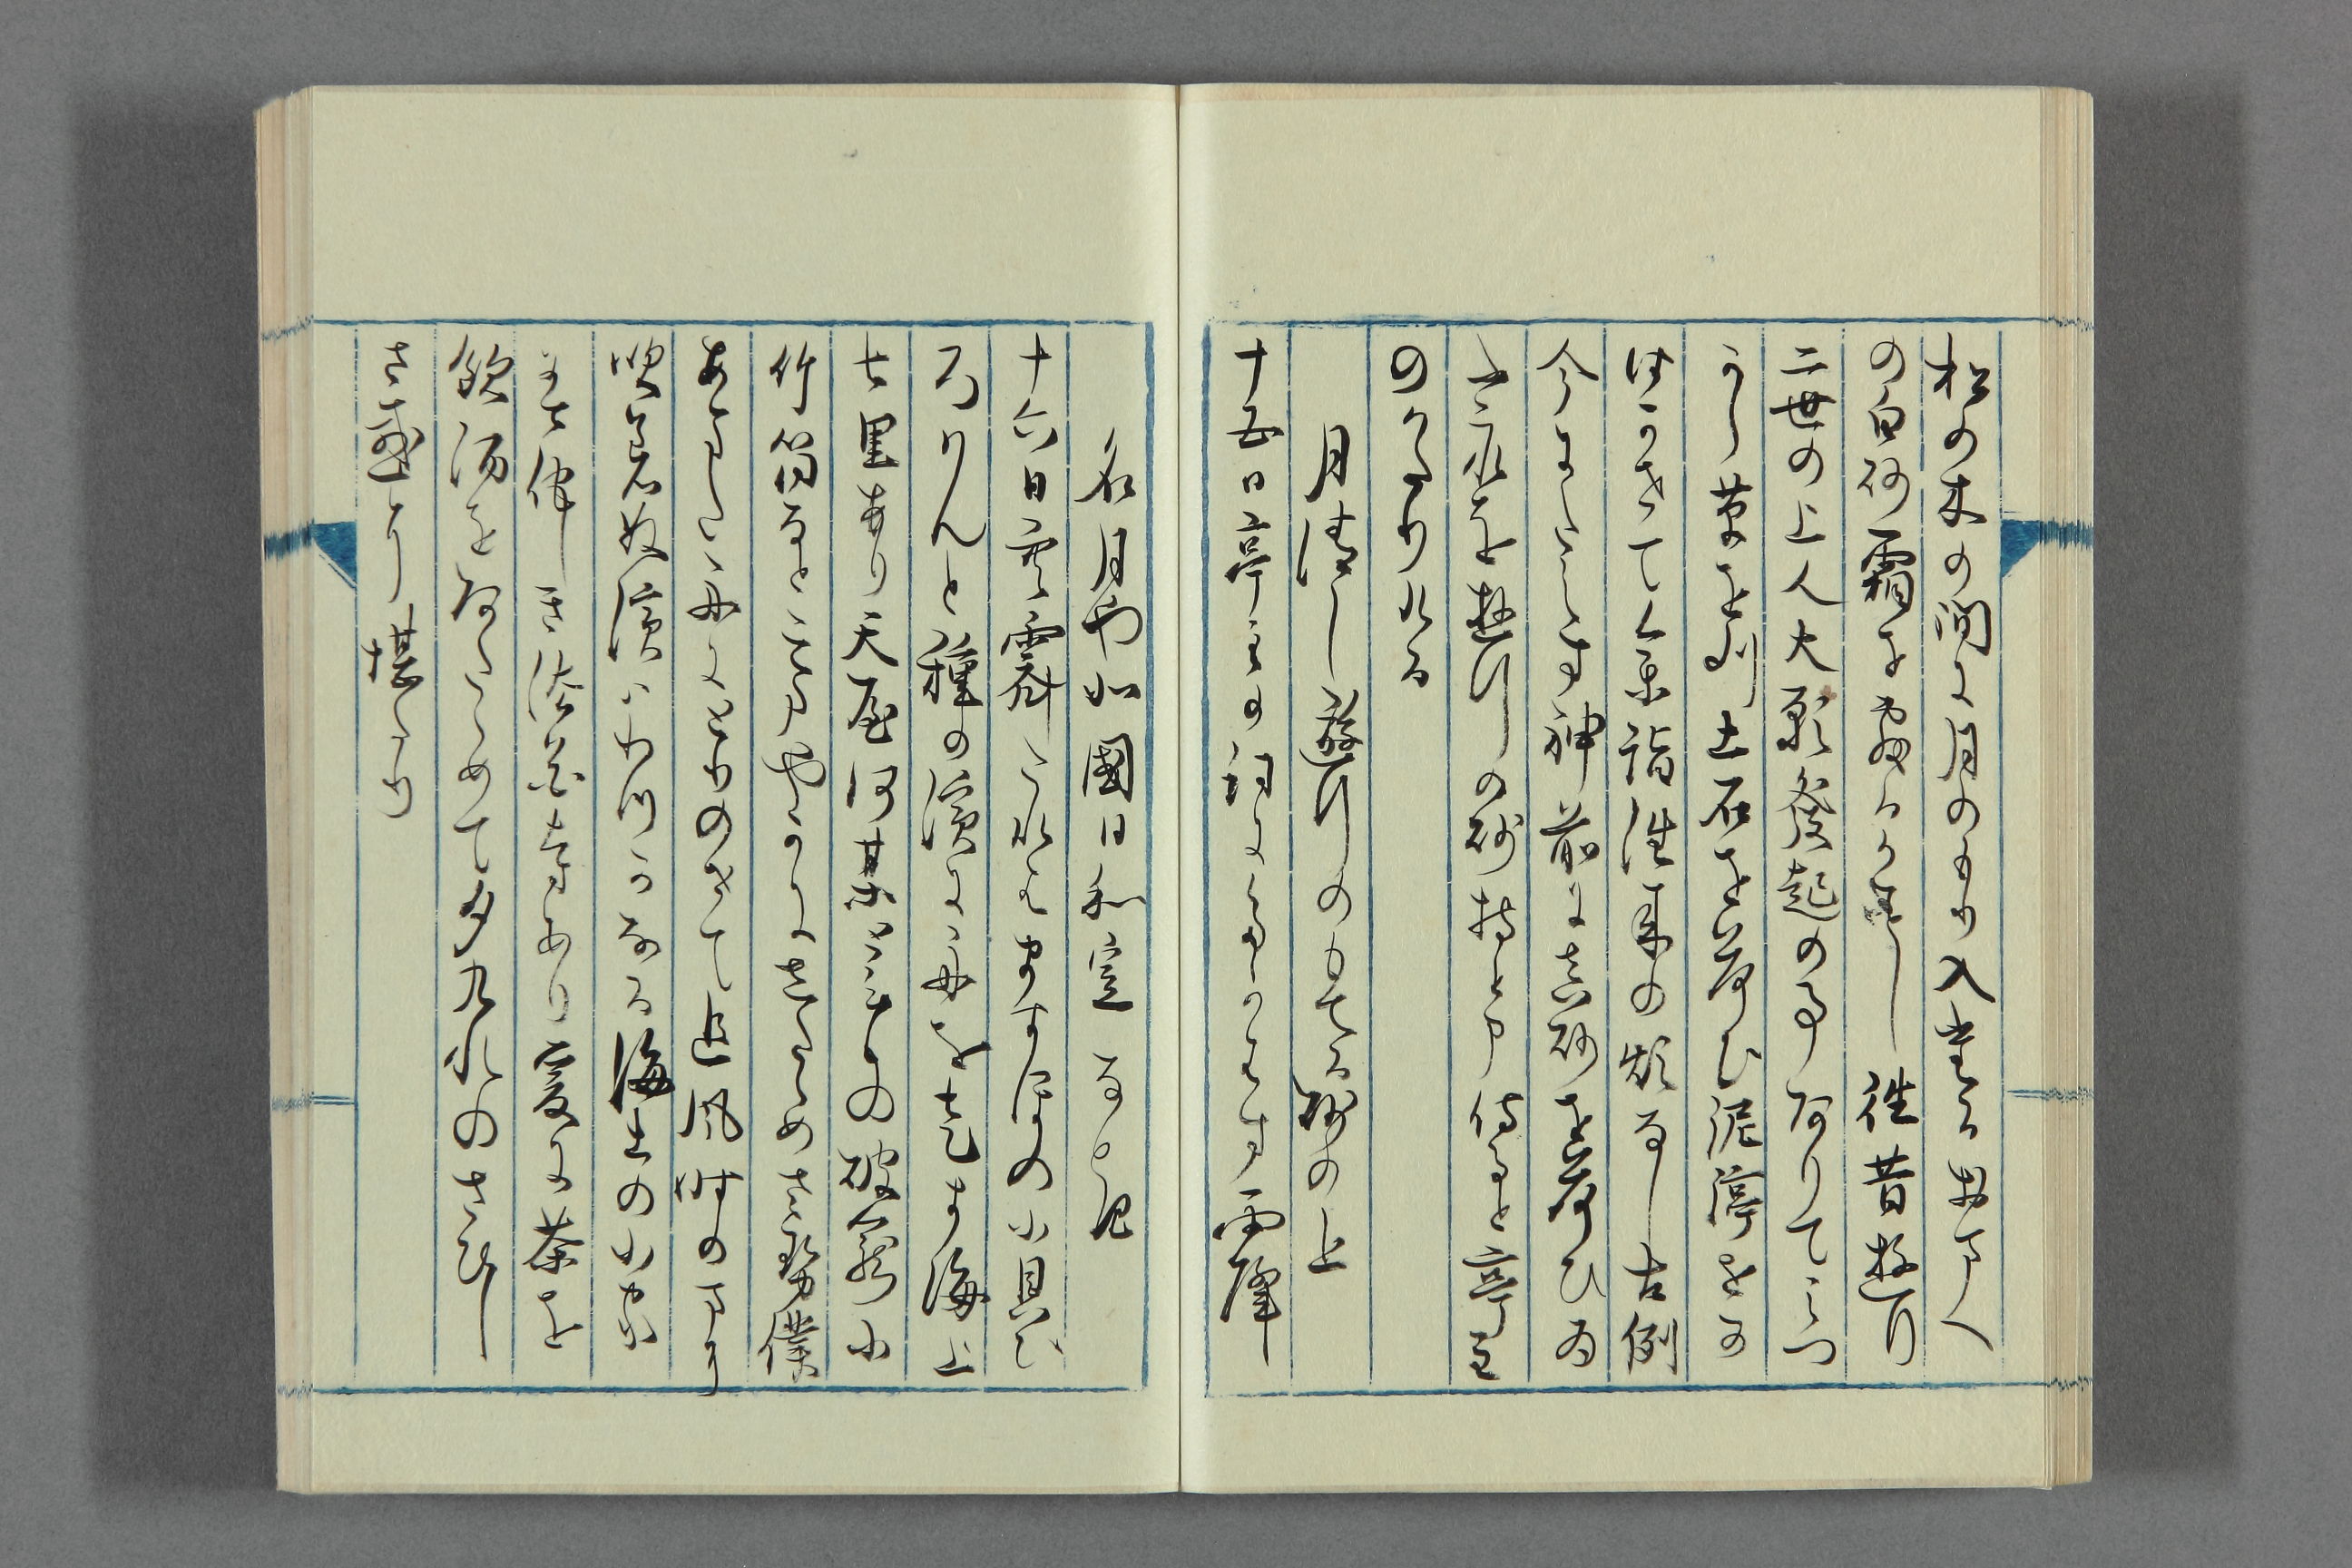 松の木の間に月のもり入たるおまへ
の白砂霜を敷るかことし往昔遊行
二世の上人大願発起の事ありてミつ
から草を刈土石を荷ひ泥渟をか
はかせて参詣往来の煩なし古例
今にたえす神前に真砂を荷ひ給
ふこれを遊行の砂持と申侍ると亭主
のかたりける
月清し遊行のもてる砂の上
十五日亭主の詞にたかはす雨降
名月や北國日和定なき
十六日空霽たれはますほの小貝ひ
ろはんと種の濱に舟を走す海上
七里あり天屋何某と云もの破籠小
竹筒なとこまやかにしたゝめさせ僕
あまた舟にとりのせて追風時のまに
吹着ぬ濱はわつかなる海士の小家
にて侘しき法花寺あり爰に茶を
飲酒をあたゝめて夕暮れのさひし
さ感に堪たり